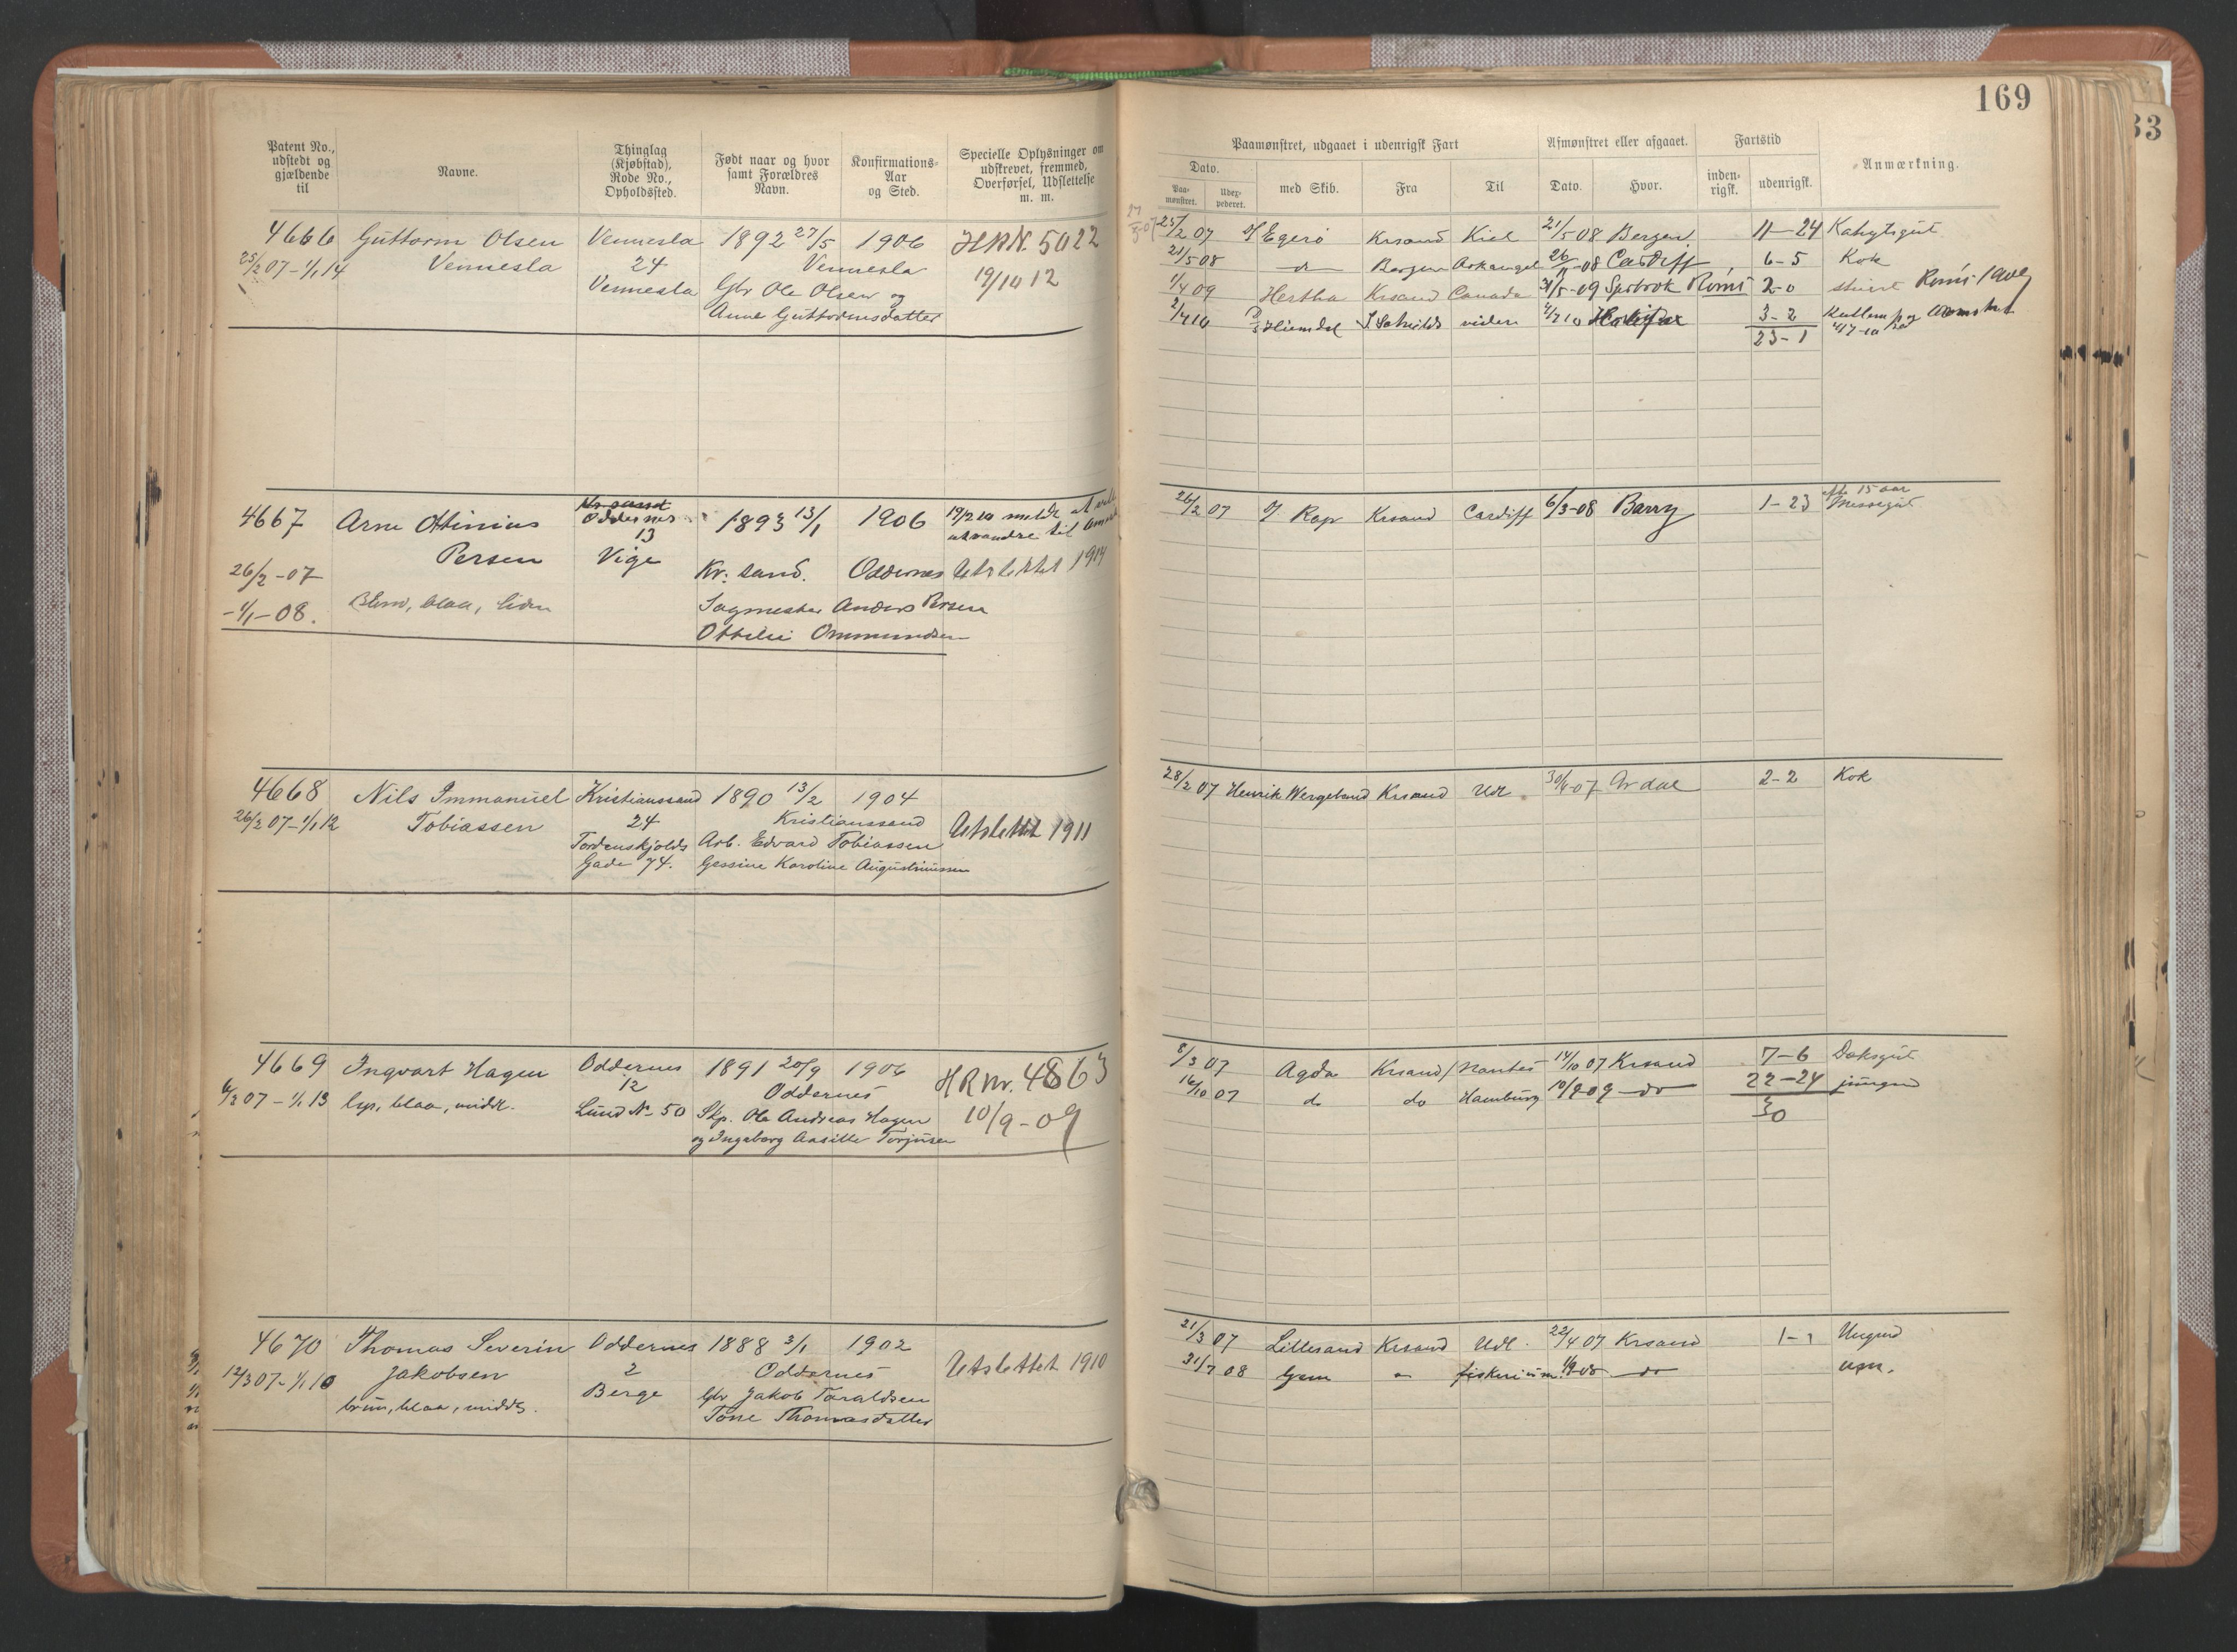 169
33
Patent No., udstedt og gjældende til
Navne.
Thinglag (Kjøbstad), Rode No., Opholdssted.
Født naar og hvor samt Forældres Navn.
Konfirmations-Aar og Sted.
Specielle Oplysninger om udskrevet, fremmed, Overførsel, Udslettelse m. m.
Paamønstret, udgaaet i udenrigsk Fart
Dato.
Paamønstret.
Udexpederet.
med Skib.
Fra
Til
Afmønstret eller afgaaet.
Dato.
Hvor.
Fartstid
indenrigsk.
udenrigsk.
Anmærkning.
4666 Guttorm Olsen Vennesla 1892 27/5 1906 HRN. 5022
25/2 07 - 1/1 14 Vennesla 24 Vennesla 19/10 12
Vennesla Gbr Ole Olsen og
Anne Guttormsdatter
25/2 07 Egerö Krsand Kiel 21/5 08 Bergen 11-24 Kahytsgut
21/5 08 do Bergen Arkangel 26/11-08 Cardiff 6-5 Kok
1/4 09 Hertha Krsand Canada 31/5-09 Rømt 2-0 Rømt 1909
Hiemdal viden 3-2
23-1
4667 Arne Ottinius Kr.sand Oddernes 1893 13/1 1906 19/2 10 meldt at ville
Persen 13 utvandre til
26/2-07 Vige Kr. sand. Oddernes Utslettet 1914
-1/1-08. Blond, blaa, liden Sagmester Anders Persen
Ottilie Ommundsen
26/2 07 Rap Krsand Cardiff 6/3-08 Barry 1-23 15 aar
Messegut
4668 Nils Immanuel Kristianssand 1890 13/2 1904
26/2 07 - 1/1 12 Tobiassen 24 Kristianssand Utslettet 1911
Tordenskjolds Arb. Edvard Tobiassen
Gade 74. Gessine Karoline Augustinussen
28/2 07 Henrik Wergeland Krsand Udl. 30/4-07 Ardal 2-2 Kok
4669 Ingvart Hagen Oddernes 1891 20/9 1906 HRNr. 4863
6/3 07 - 1/1 13 lys, blaa, midd. 12 Oddernes 10/9-09
Lund No 50 Skp. Ole Andreas Hagen
og Ingeborg Aasille Torjusen
8/3 07 Agda Krsand Nantes 14/10 07 Krsand 7-6 Doksgut
16/10 07 do do Hamburg 10/9 09 do 22-24 jungm
30
4670 Thomas Severin Oddernes 1888 3/1 1902
12/3 07 - 1/1 10 Jakobsen 2 Oddernes Utslettet 1910
brun, blaa, midds. Berge Gbr Jakob Taraldsen
Tone Thomasdatter
21/3 07 Lillesand Krsand Udl. 22/4 07 Krsand 1-1 Ungmd
31/7 08 Gem fiskeri do